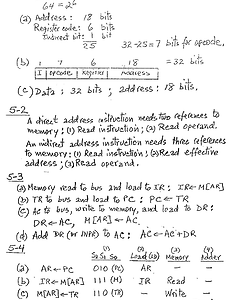 64 = 2⁶
(a) Address: 18 bits
Register code: 6 bits
Indirect bit: 1 bit
25 32-25=7 bits for opcode.
(b) 1 7 6 18 = 32 bits
I opcode Register Address
(c) Data: 32 bits; address: 18 bits.
5-2
A direct address instruction needs two references to
memory: (1) Read instruction; (2) Read operand.
An indirect address instruction needs three references
to memory: (1) Read instruction; (2) Read effective
address; (3) Read operand.
5-3
(a) Memory read to bus and load to IR: IR ← M[AR]
(b) TR to bus and load to PC: PC ← TR
(c) AC to bus, write to memory, and load to DR:
DR ← AC, M[AR] ← AC
(d) Add DR (or INPR) to AC: AC ← AC + DR
5-4
(1) (2) (3) (4)
S₂S₁S₀ Load (LD) Memory Adder
(a) AR ← PC 010 (PC) AR — —
(b) IR ← M[AR] 111 (M) IR Read —
(c) M[AR] ← TR 110 (TR) — Write —